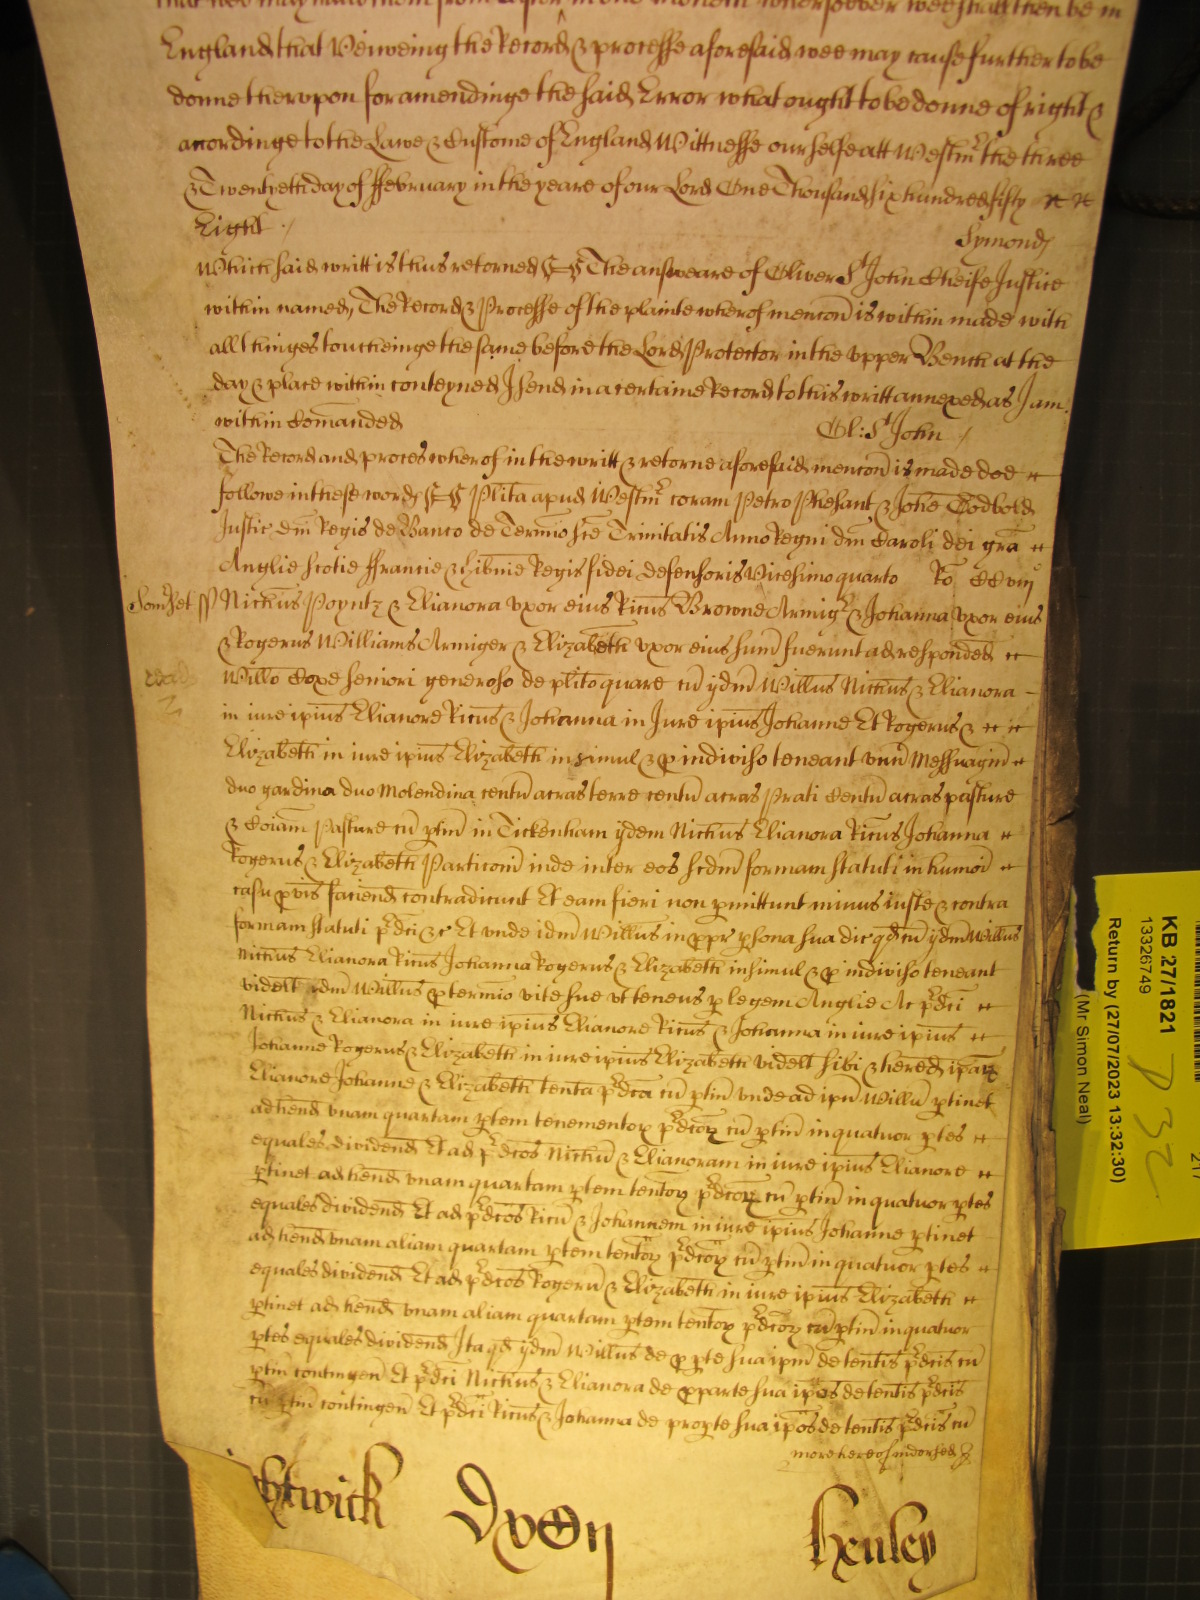 England that Veiweing the Record & processe aforesaid wee may cause further to be
donne therupon for amendinge the said Error what ought to be donne of right &
acordinge to the Lawe & Custome of England Wittnesse our selfe att Westmr the three
& Twentyeth day of ffebruary in the yeare of our Lord One Thousand six hundred fifty
Eight
Symonds
Which said writt is thus retorned SS The answeare of Oliver St John Cheife Justice
within named, The Record & Processe of the plainte wherof mencon is within made with
all thinges toucheinge the same before the Lord Protector in the upper Bench at the
day & place within conteyned I send in a certaine Record to this writt annexed as I am
within Comanded
Ol: St John
The Record and proces wherof in the writt & retorne aforesaid mencon is made doe
followe in these words SS Plita apud Westmr coram Petro Phesant & Johe Godbold
Justic dm Regis de Banco de Termio sce Trinitatis Anno Regni dm Caroli dei gra
Anglie Scotie ffrancie & Hibnie Regis fidei defensoris Vicesimo quarto Ro
Somset ss Nichus Poyntz & Elianora uxor eius Ricus Browne Armigr & Johanna uxor eius
& Rogerus Williams Armiger & Elizabeth uxor eius sum fuerunt ad respondend
Willo Coxe seniori generoso de plito quare cu ijdm Willus Nichus & Elianora
in iure ipius Elianore Ricus & Johanna in Jure ipius Johanne Et Rogerus &
Elizabeth in iure ipius Elizabeth insimul & p indiviso teneant unu Messuagiu
duo gardina duo Molendina centu acras terre centu acras Prati Centu acras pasture
& Coiam Pasture cu ptin in Tickenham ijdem Nichus Elianora Ricus Johanna
Rogerus & Elizabeth Particoni inde inter eos scdm formam statuti in humoi
casu pvis faciend contradicunt Et eam fieri non pmittunt minus iuste & contra
formam statuti pdci &c Et unde idm Willus in ppr psona sua dic qd cu ijdm Willus
Nichus Elianora Ricus Johanna Rogerus & Elizabeth insimul & p indiviso teneant
videlt idm Willus p termio vite sue ut tenens p legem Anglie Ac pdci
Nichus & Elianora in iure ipius Elianore Ricus & Johanna in iure ipius
Johanne Rogerus & Elizabeth in iure ipius Elizabeth videlt sibi & hered ipar
Elianore Johanne & Elizabeth tenta pdca cu ptin unde ad ipm Willu ptinet
ad hend unam quartam ptem tenementor pdcor cu ptin in quatuor ptes
equales dividend Et ad pdcos Nichu & Elianoram in iure ipius Elianore
ptinet ad hend unam quartam ptem tentor pdcor cu ptin in quatuor ptes
equales dividend Et ad pdcos Ricu & Johannem in iure ipius Johanne ptinet
ad hend unam aliam quartam ptem tentor pdcor cu ptin in quatuor ptes
equales dividend Et ad pdcos Rogeru & Elizabeth in iure ipius Elizabeth
ptinet ad hend unam aliam quartam ptem tentor pdcor cu ptin in quatuor
ptes equales dividend Ita qd ijdm Willus de p pte sua ipm de tentis pdcis cu
ptin contingen Et pdci Nichus & Elianora de pparte sua ipos de tentis pdcis
cu ptin contingen Et pdci Ricus & Johanna de propte sua ipos de tentis pdcis cu
more hereof indorsed
htwick Dyxon Henley
KB 27/1821
13326749
Return by (27/07/2023 13:32:30)
(Mr Simon Neal)
217